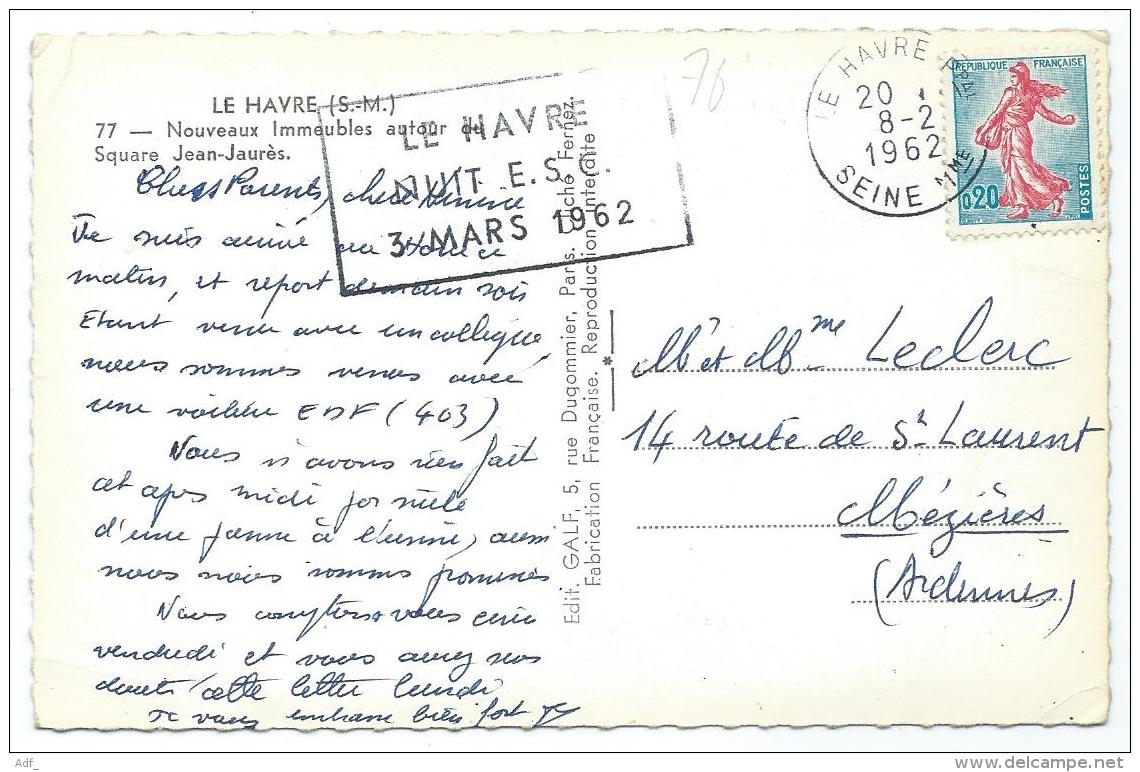 LE HAVRE (S.-M.)
77 — Nouveaux Immeubles autour du
Square Jean-Jaurès.
LE HAVRE
NUIT E.S.C.
3 MARS 1962
76
LE HAVRE
20
8-2
1962
SEINE MME
REPUBLIQUE FRANÇAISE
0,20
POSTES
Chers Parents, chère
Je suis arrivé au Havre ce
matin, et repart demain soir
Etant venu avec un collègue
nous sommes venus avec
une voiture EDF (403)
Nous n'avons rien fait
cet après midi par suite
d'une panne à l'usine, aussi
nous nous sommes promenés
Nous comptons vous
vendredi et vous aurez sans
doute cette lettre lundi
Je vous embrasse bien fort
Edit. GALF, 5, rue Dugommier, Paris. Cliché Fernez.
Fabrication Française. Reproduction interdite
Mr et Mme Leclerc
14 route de St Laurent
Mézières
(Ardennes)
Adf_
www.delcampe.net